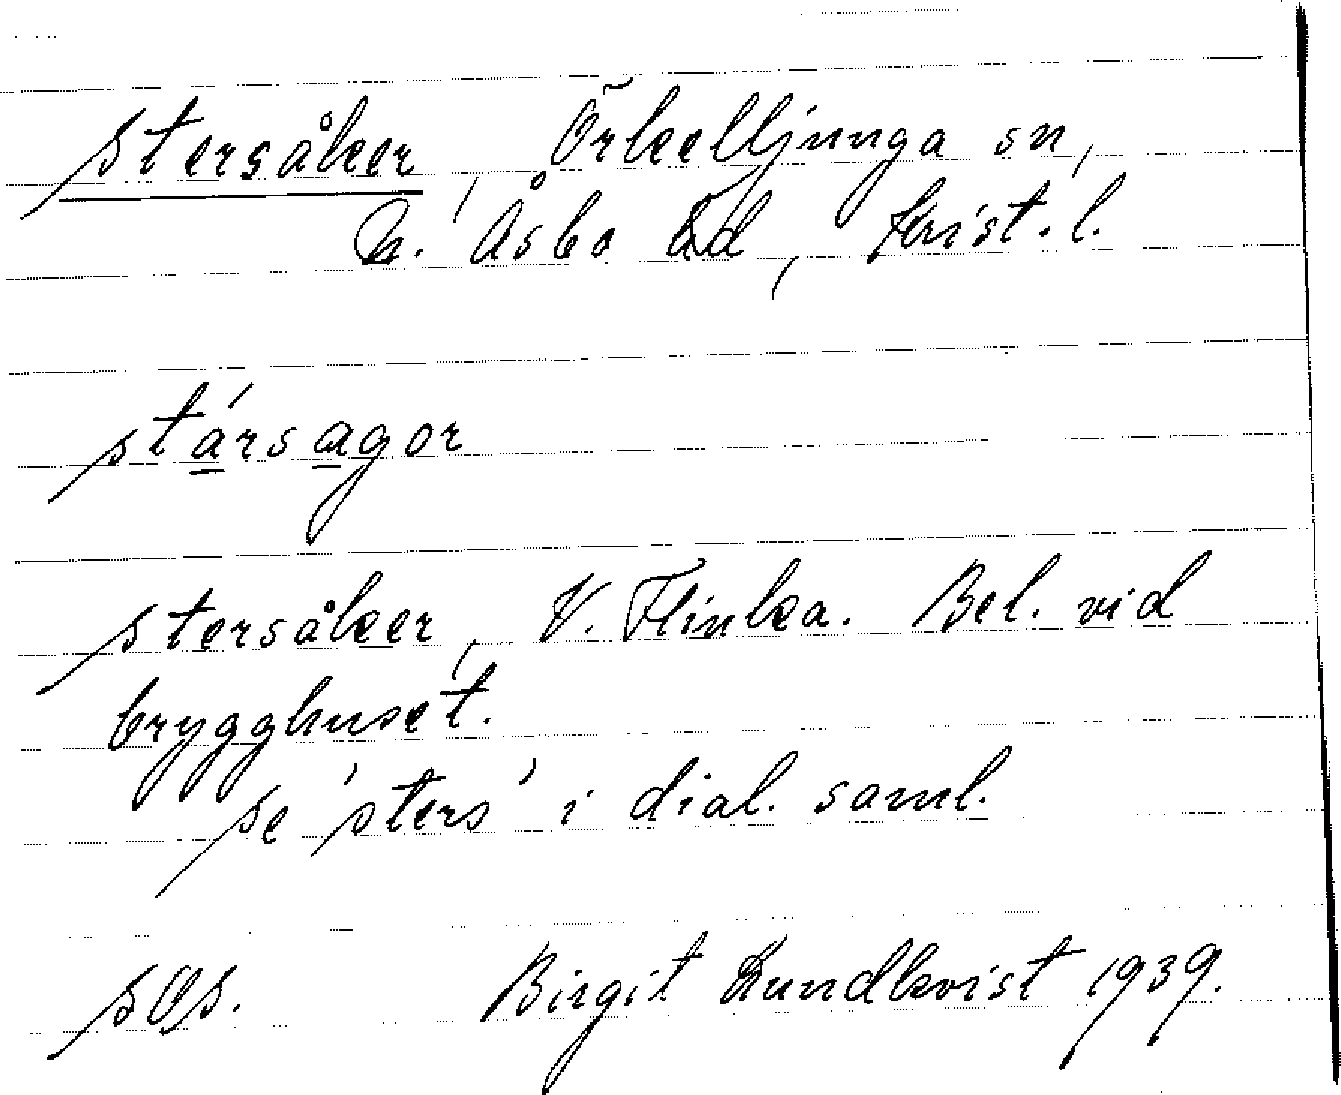 stersåker, Örkelljunga sn,
N. Åsbo hd, Krist. l.
stársagor
stersåker, V. Flinka. Bel. vid
brygghuset.
se 'sters' i dial. saml.
sųs. Birgit Lundkvist 1939.